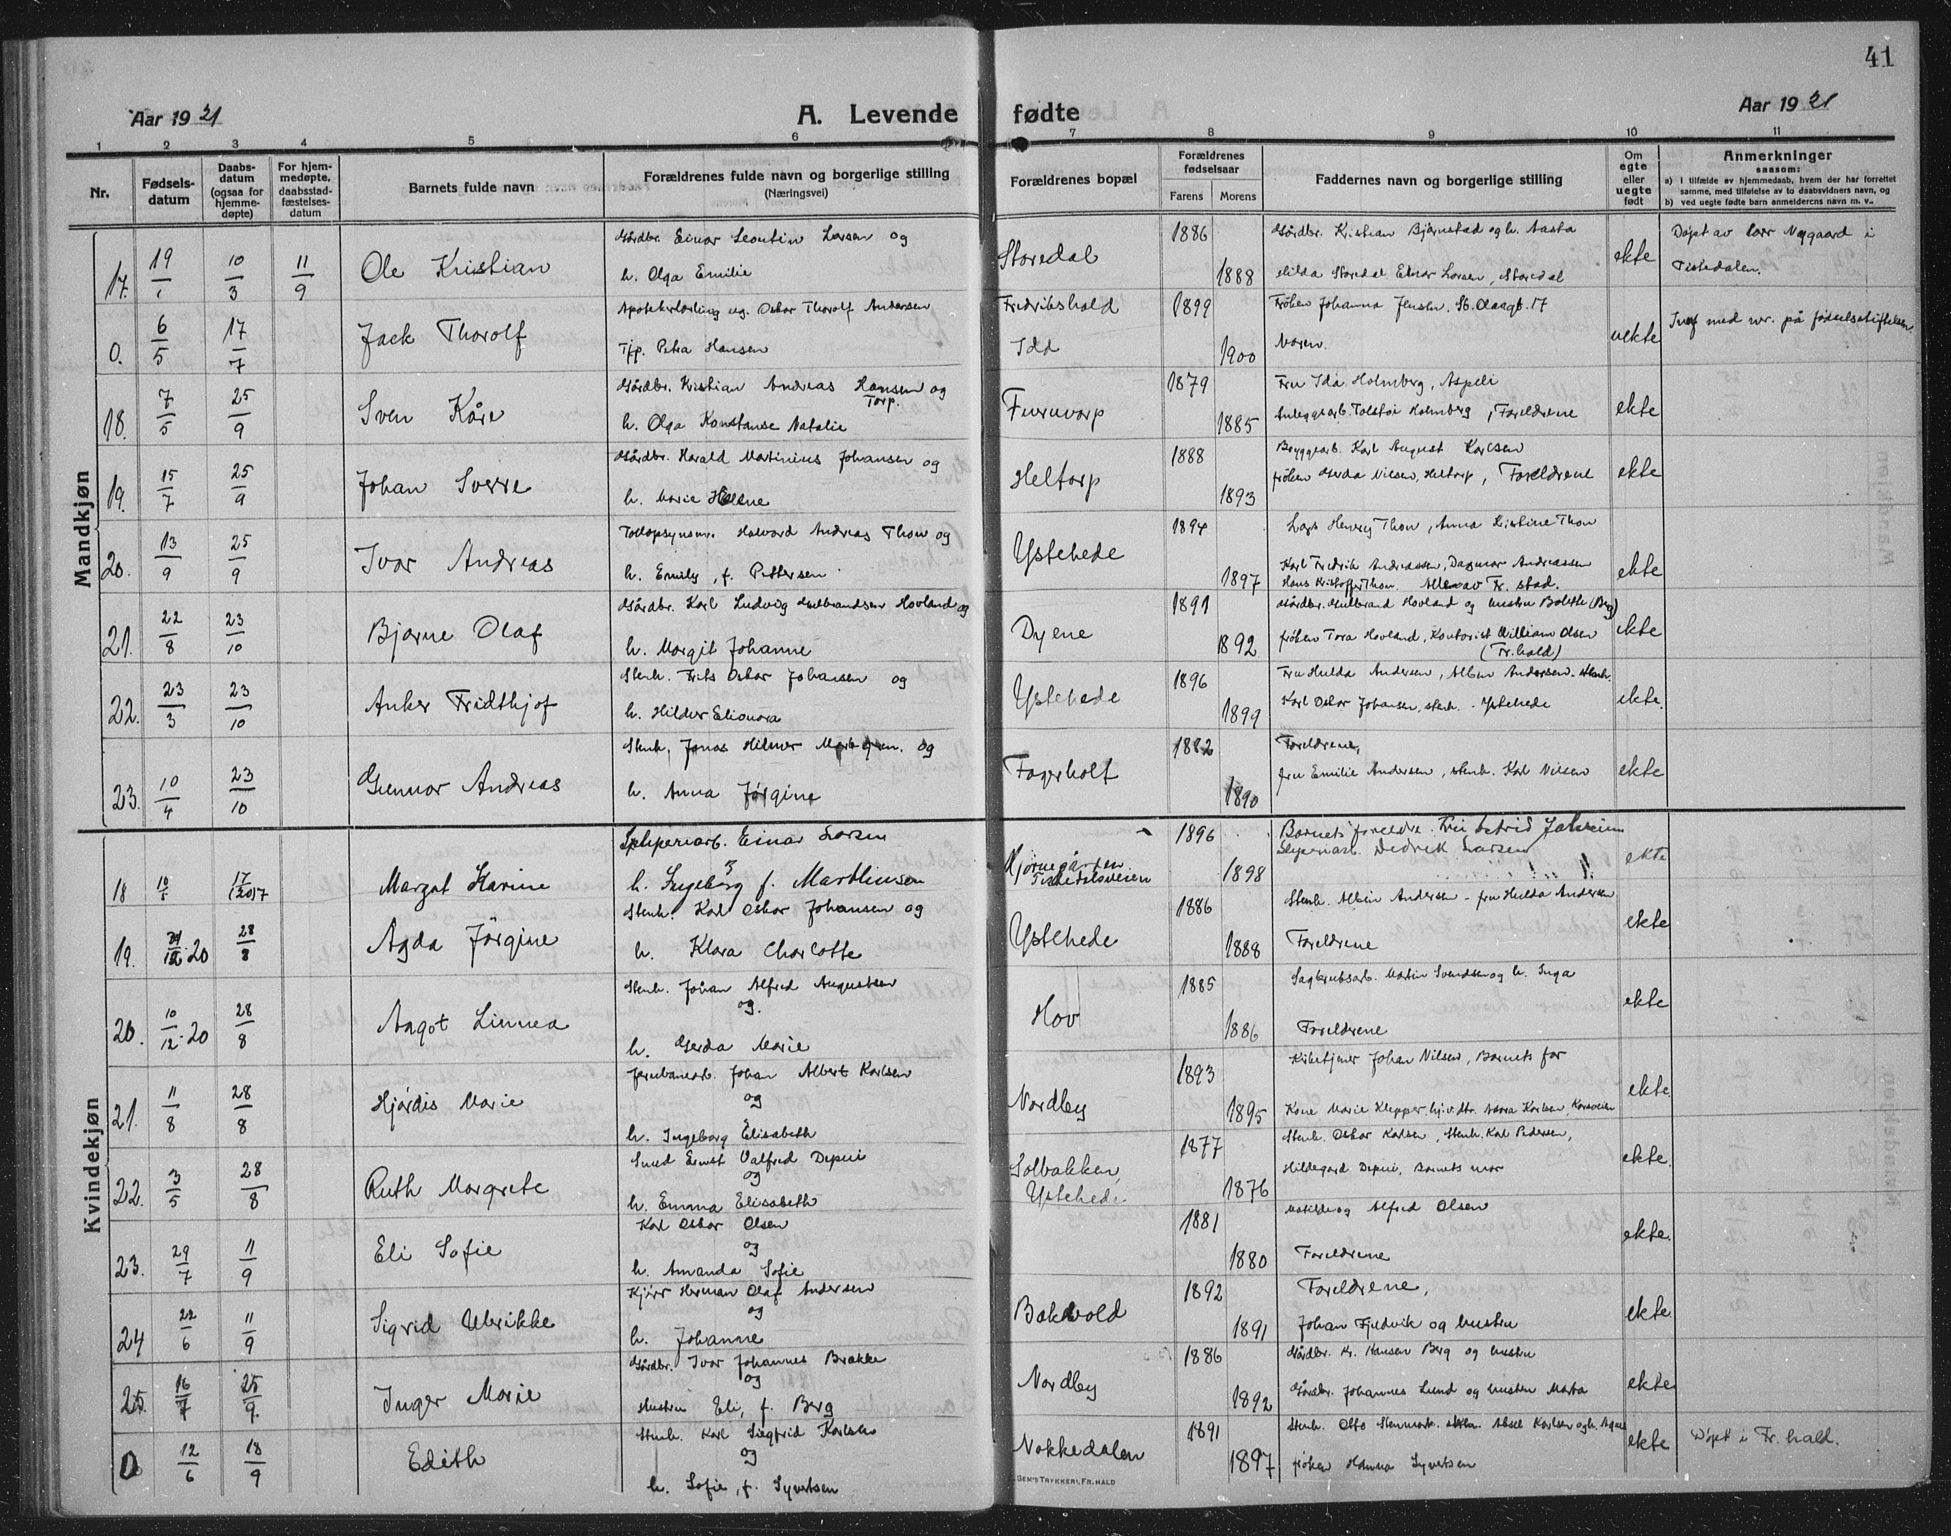 41
Aar 1921
A. Levende fødte
Aar 1921
1 2 3 4 5 6 7 8 9 10 11
Nr.
Fødsels-
datum
Daabs-
datum
(ogsaa for
hjemme-
døpte)
For hjem-
medøpte,
daabsstad-
fæstelses-
datum
Barnets fulde navn
Forældrenes fulde navn og borgerlige stilling
(Næringsvei)
Forældrenes bopæl
Forældrenes
fødselsaar
Farens Morens
Faddernes navn og borgerlige stilling
Om
egte
eller
uegte
født
Anmerkninger
saasom:
a) i tilfælde av hjemmedaab, hvem der har forrettet
samme, med tilføielse av to daabsvidners navn, og
b) ved uegte fødte barn anmelderens navn m. v..
Mandkjøn
17. 19/1 10/3 11/9 Ole Kristian
Gårdbr. Einar Leontin Larsen og
h. Olga Emilie
Storedal 1886 1888
Gårdbr. Kristian Bjørnstad og h. Aasta
Milda Storedal Einar Larsen, Storedal
ekte
Døpt av Nygaard i
Tistedalen.
0. 6/5 17/7 Jack Thorolf
Apotekerlærling ug. Oskar Thorolf Andersen
Tjp. Petra Hansen
Fredrikshald
Idd 1899 1900
Frøken Johanna Jensen, St. Olaagt. 17
Moren.
uekte
med nr. på fødselsstiftelsen
18. 7/5 25/9 Sven Kåre
Gårdbr. Kristian Andreas Hansen og
Torp.
h. Olga Konstanse Natalie
Furuvarp 1879 1885
Fru Ida Holmberg, Aspeli
Anleggsarb. Tolstoi Holmberg, Foreldrene
ekte
19. 15/7 25/9 Johan Sverre
Gårdbr. Harald Martinius Johansen og
h. Marie Helene
Heltorp 1888 1893
Byggearb. Karl August Karlsen
frøken Gerda Nilsen, Heltorp, Foreldrene
ekte
20. 13/9 25/9 Ivar Andreas
Tolopsynsm. Halvard Andreas Thon og
h. Emily, f. Pettersen
Ystehede 1894 1897
Lars Henry Thon, Anna Kristine Thon
Karl Fredrik Andreassen, Dagmar Andreassen
Hans Kristoffer Thon. Alle av Fr. stad.
ekte
21. 22/8 23/10 Bjarne Olaf
Gårdbr. Karl Ludvig Gulbrandsen Hovland og
h. Margit Johanne
Dyene 1891 1892
Gårdbr. Gulbrand Hovland og hustru Bolette (Berg)
frøken Tora Hovland, Kontorist William Olsen
(Fr.hald)
ekte
22. 23/3 23/10 Anker Fridthjof
Stenh. Frits Oskar Johansen og
h. Hilder Elionora
Ystehede 1896 1899
Fru Hulda Andersen, Albin Andersen. stenh.
Karl Oskar Johansen, stenh. - Ystehede
ekte.
23. 10/4 23/10 Gunnar Andreas
Stenh, Jonas Hilmer og
h. Anna Jørgine
Fagerholt 1882 1890
Foreldrene,
fru Emilie Andersen, stenh. Karl Nilsen
ekte
Kvindekjøn
18 10/5 17/7 Margot Karine
Sliperiarb. Einar Larsen
h. Ingeborg f. Martinsen
Hjørnegården
Tistedalsveien 1896 1898
Barnets foreldre. Fru Astrid
Sliperiarb. Dedrik Larsen
ekte
19. 12.20 28/8 Agda Jørgine
Stenh. Karl Oskar Johansen og
h. Klara Charlotte
Ystehede 1886 1888
Stenh. Albin Andersen - fru Hulda Andersen
Foreldrene
ekte
20. 10/12.20 28/8 Aagot Linnea
Stenh. Johan Alfred Augustsen
og.
h. Gerda Marie
Hov 1885 1886
Sagbruksarb. Martin Svendsen og h. Inga
Foreldrene
ekte
21. 11/8 28/8 Hjørdis Marie
Jernbanearb. Johan Albert Karlsen
og
h. Ingeborg Elisabeth
Nordby 1893 1895
Kirketjener Johan Nilsen, Barnets far
Kone Marie Klepper, hj.v.dtr. Nora Karlsen, Korsveien
ekte.
22. 3/5 28/8 Ruth Margrete
Smed Ernst Valfred Depui
og
h. Emma Elisabeth
Solbakken,
Ystehede 1877 1876
Stenh. Oskar Karlsen, Stenh. Karl Pedersen,
Hildegard Depui, Barnets mor
ekte.
23. 29/7 11/9 Eli Sofie
Karl Oskar Olsen
og
h. Amanda Sofie
1881 1880
Matilde og Alfred Olsen
Foreldrene
ekte.
24 22/6 11/9 Sigrid Ulrikke
Kjører Herman Olaf Andersen
og
h. Johanne
Bakkvold 1892 1891
Foreldrene,
Johan Fjedvik og hustru
ekte
25. 16/7 25/9. Inger Marie
Gårdbr. Ivar Johannes Brække
og
Hustru Eli, f. Berg
Nordby 1886 1892
Gårdbr. Kr. Hansen Berg og hustru
Gårdbr. Johannes Lund og hustru Marta
ekte
0 12/6 18/9 Edith
Stenh. Karl Sigfrid Karlsen
og
h. Sofie, f. Syvertsen
Nokkedalen 1891 1897
Stenh. Otto Stenmark. Aksel Karlsen og h. Agnes
frøken Hanna Syvertsen
ekte
Døpt i Fr.hald.
SEM'S TRYKKERI, FR.HALD